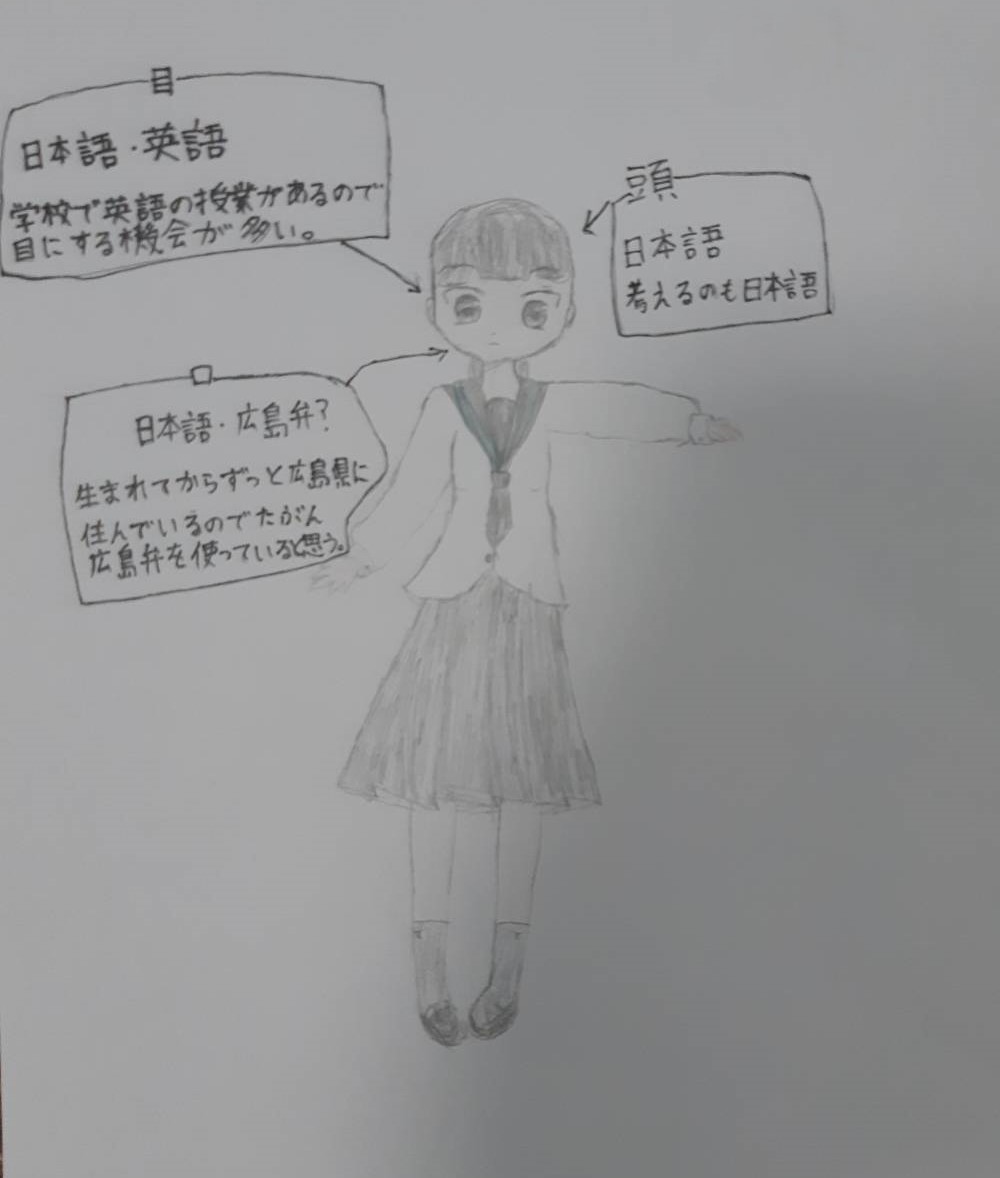 目
日本語・英語
学校で英語の授業があるので
目にする機会が多い。
頭
日本語
考えるのも日本語
口
日本語・広島弁?
生まれてからずっと広島県に
住んでいるのでたぶん
広島弁を使っていると思う。